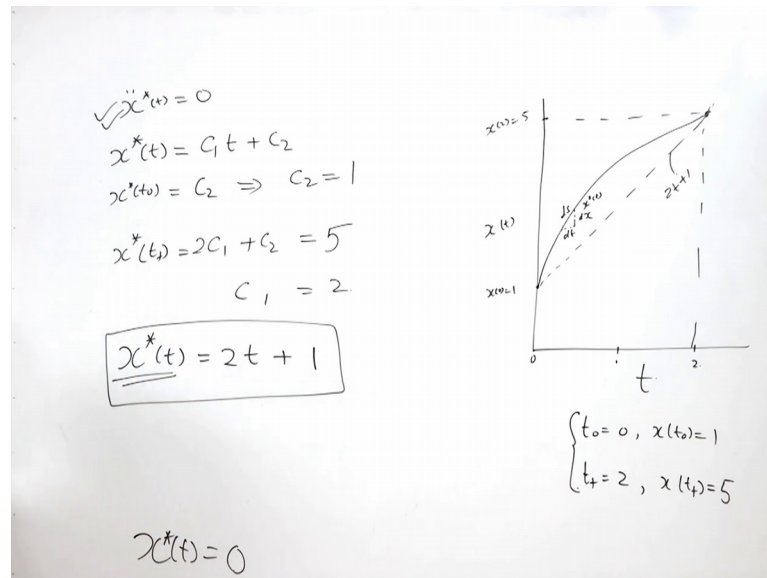 ẍ*(t) = 0
x*(t) = C₁t + C₂
x*(t₀) = C₂ ⇒ C₂ = 1
x*(t₊) = 2C₁ + C₂ = 5
C₁ = 2
x*(t) = 2t + 1
x*(t) = 0
x(2)=5
x(t)
x(0)=1
ds
x*(t)
dx
dt
2t+1
0
1
2
t
t₀ = 0, x(t₀) = 1
t₊ = 2, x(t₊) = 5